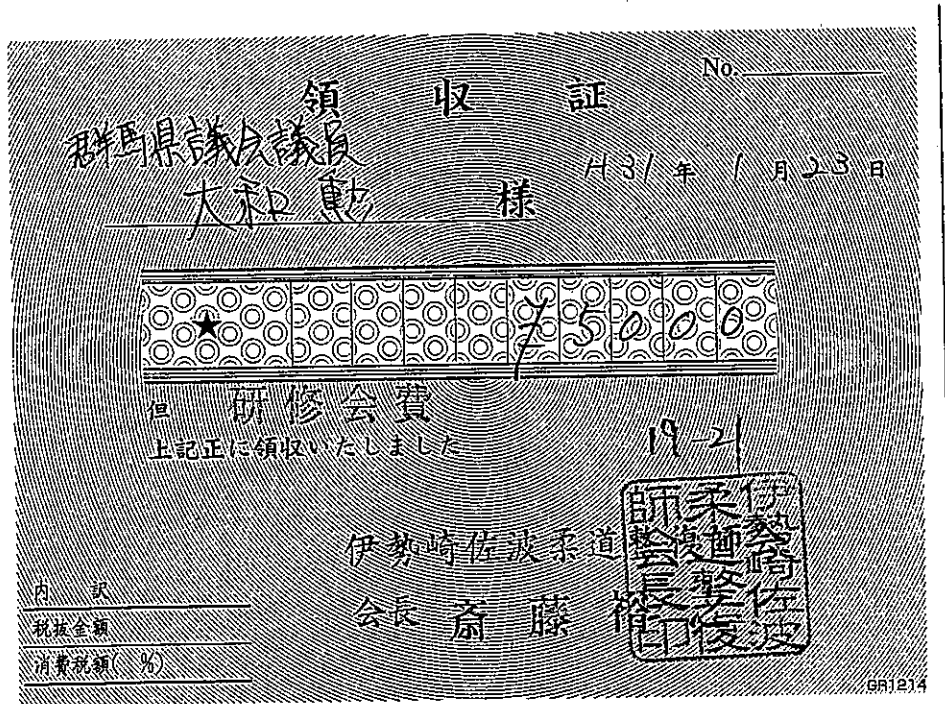 No.
領収証
群馬県議会議員
H31年1月23日
大和勲 様
★ ¥5000
但 研修会費
上記正に領収いたしました
19-21
伊勢崎佐波柔道整復師会
会長 斎藤
伊勢崎佐波
柔道整復
師会長印
内訳
税抜金額
消費税額( %)
GR1214